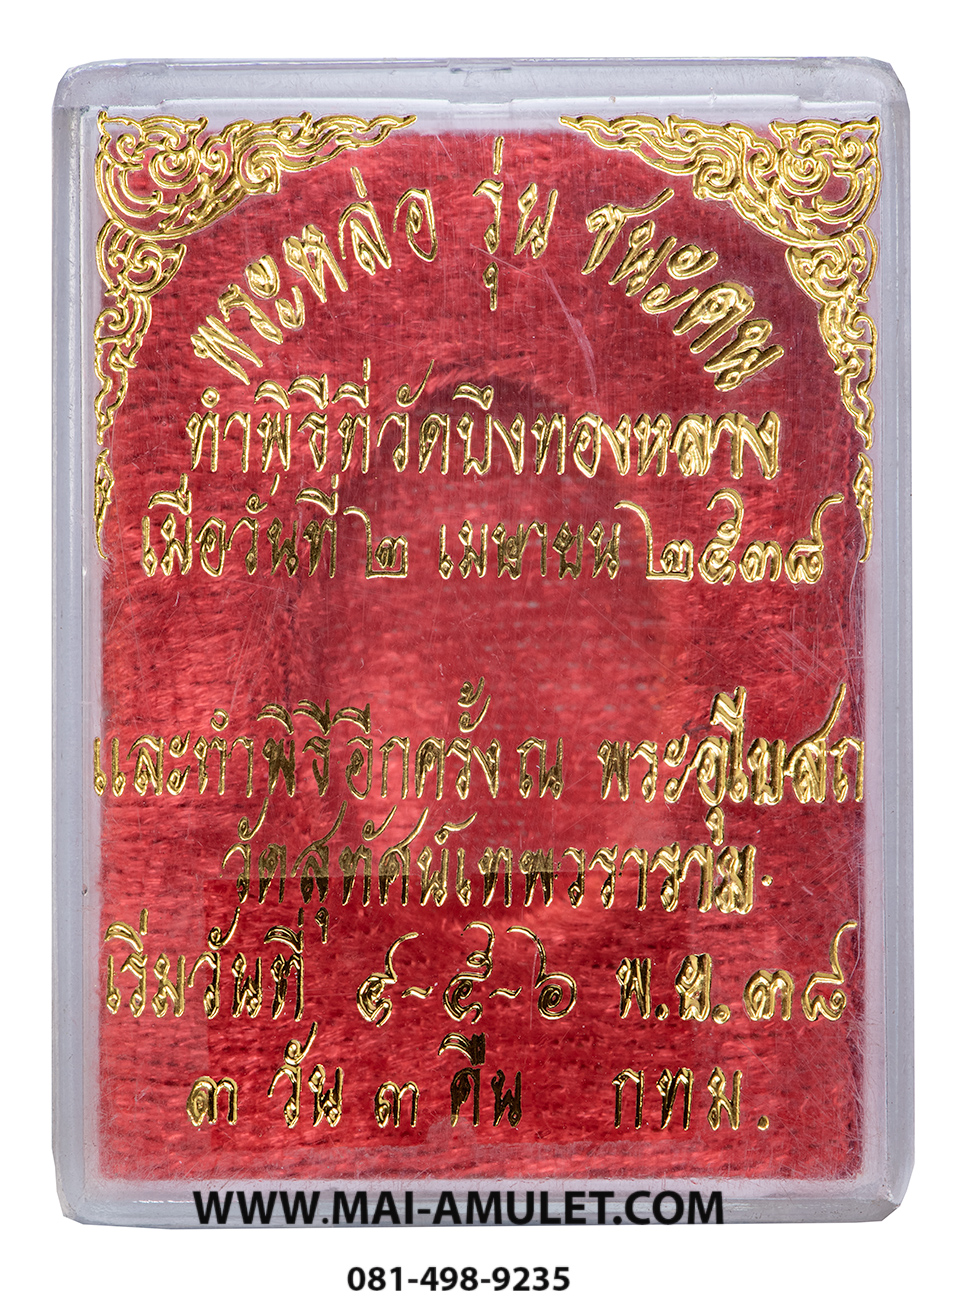 พระหล่อ รุ่น ชนะคน
ทำพิธีที่วัดบึงทองหลาง
เมื่อวันที่ ๒ เมษายน ๒๕๓๘
และทำพิธีอีกครั้ง ณ พระอุโบสถ
วัดสุทัศน์เทพวราราม.
เริ่มวันที่ ๔-๕-๖ พ.ย.๓๘
๓ วัน ๓ คืน กทม.
WWW.MAI-AMULET.COM
081-498-9235